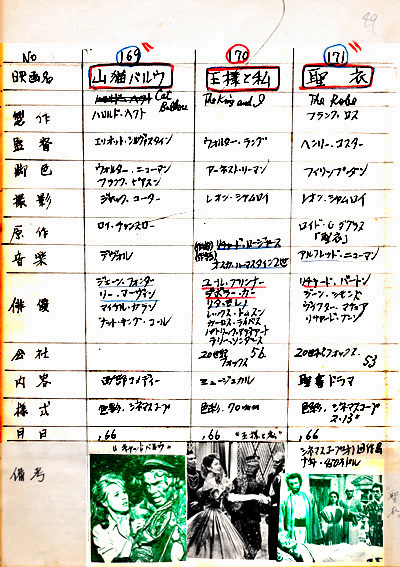 49
No 169 170 171
映画名 山猫バルウ 王様と私 聖衣
Cat Ballou The King and I The Robe
製作 ハロルド・ヘクト フランク・ロス
監督 エリオット・シルヴァスタイン ウォルター・ラング ヘンリー・コスター
脚色 ウォルター・ニューマン アーネスト・リーマン フィリップ・ダン
フランク・ピアスン
撮影 ジャック・マータ レオン・シャムロイ レオン・シャムロイ
原作 ロイ・チャンスロー ロイド・C・ダグラス
「聖衣」
音楽 デヴォル リチャード・ロジャース アルフレッド・ニューマン
オスカー・ハマースタイン2世
俳優 ジェーン・フォンダ ユール・ブリンナー リチャード・バートン
リー・マーヴィン デボラ・カー ジーン・シモンズ
マイケル・カラン リタ・モレノ ヴィクター・マチュア
ナット・キング・コール レックス・トムスン
カーロス・リヴァス
テリー・ソンダース
会社 20世紀フォックス 56 20世紀フォックス 53
内容 西部コメディー ミュージカル 聖書ドラマ
様式 色彩、シネマスコープ 色彩、70mm 色彩、シネマスコープ
月日 ,66 ,66 "王様と私" ,66
備考 シネマスコープ第1回作品